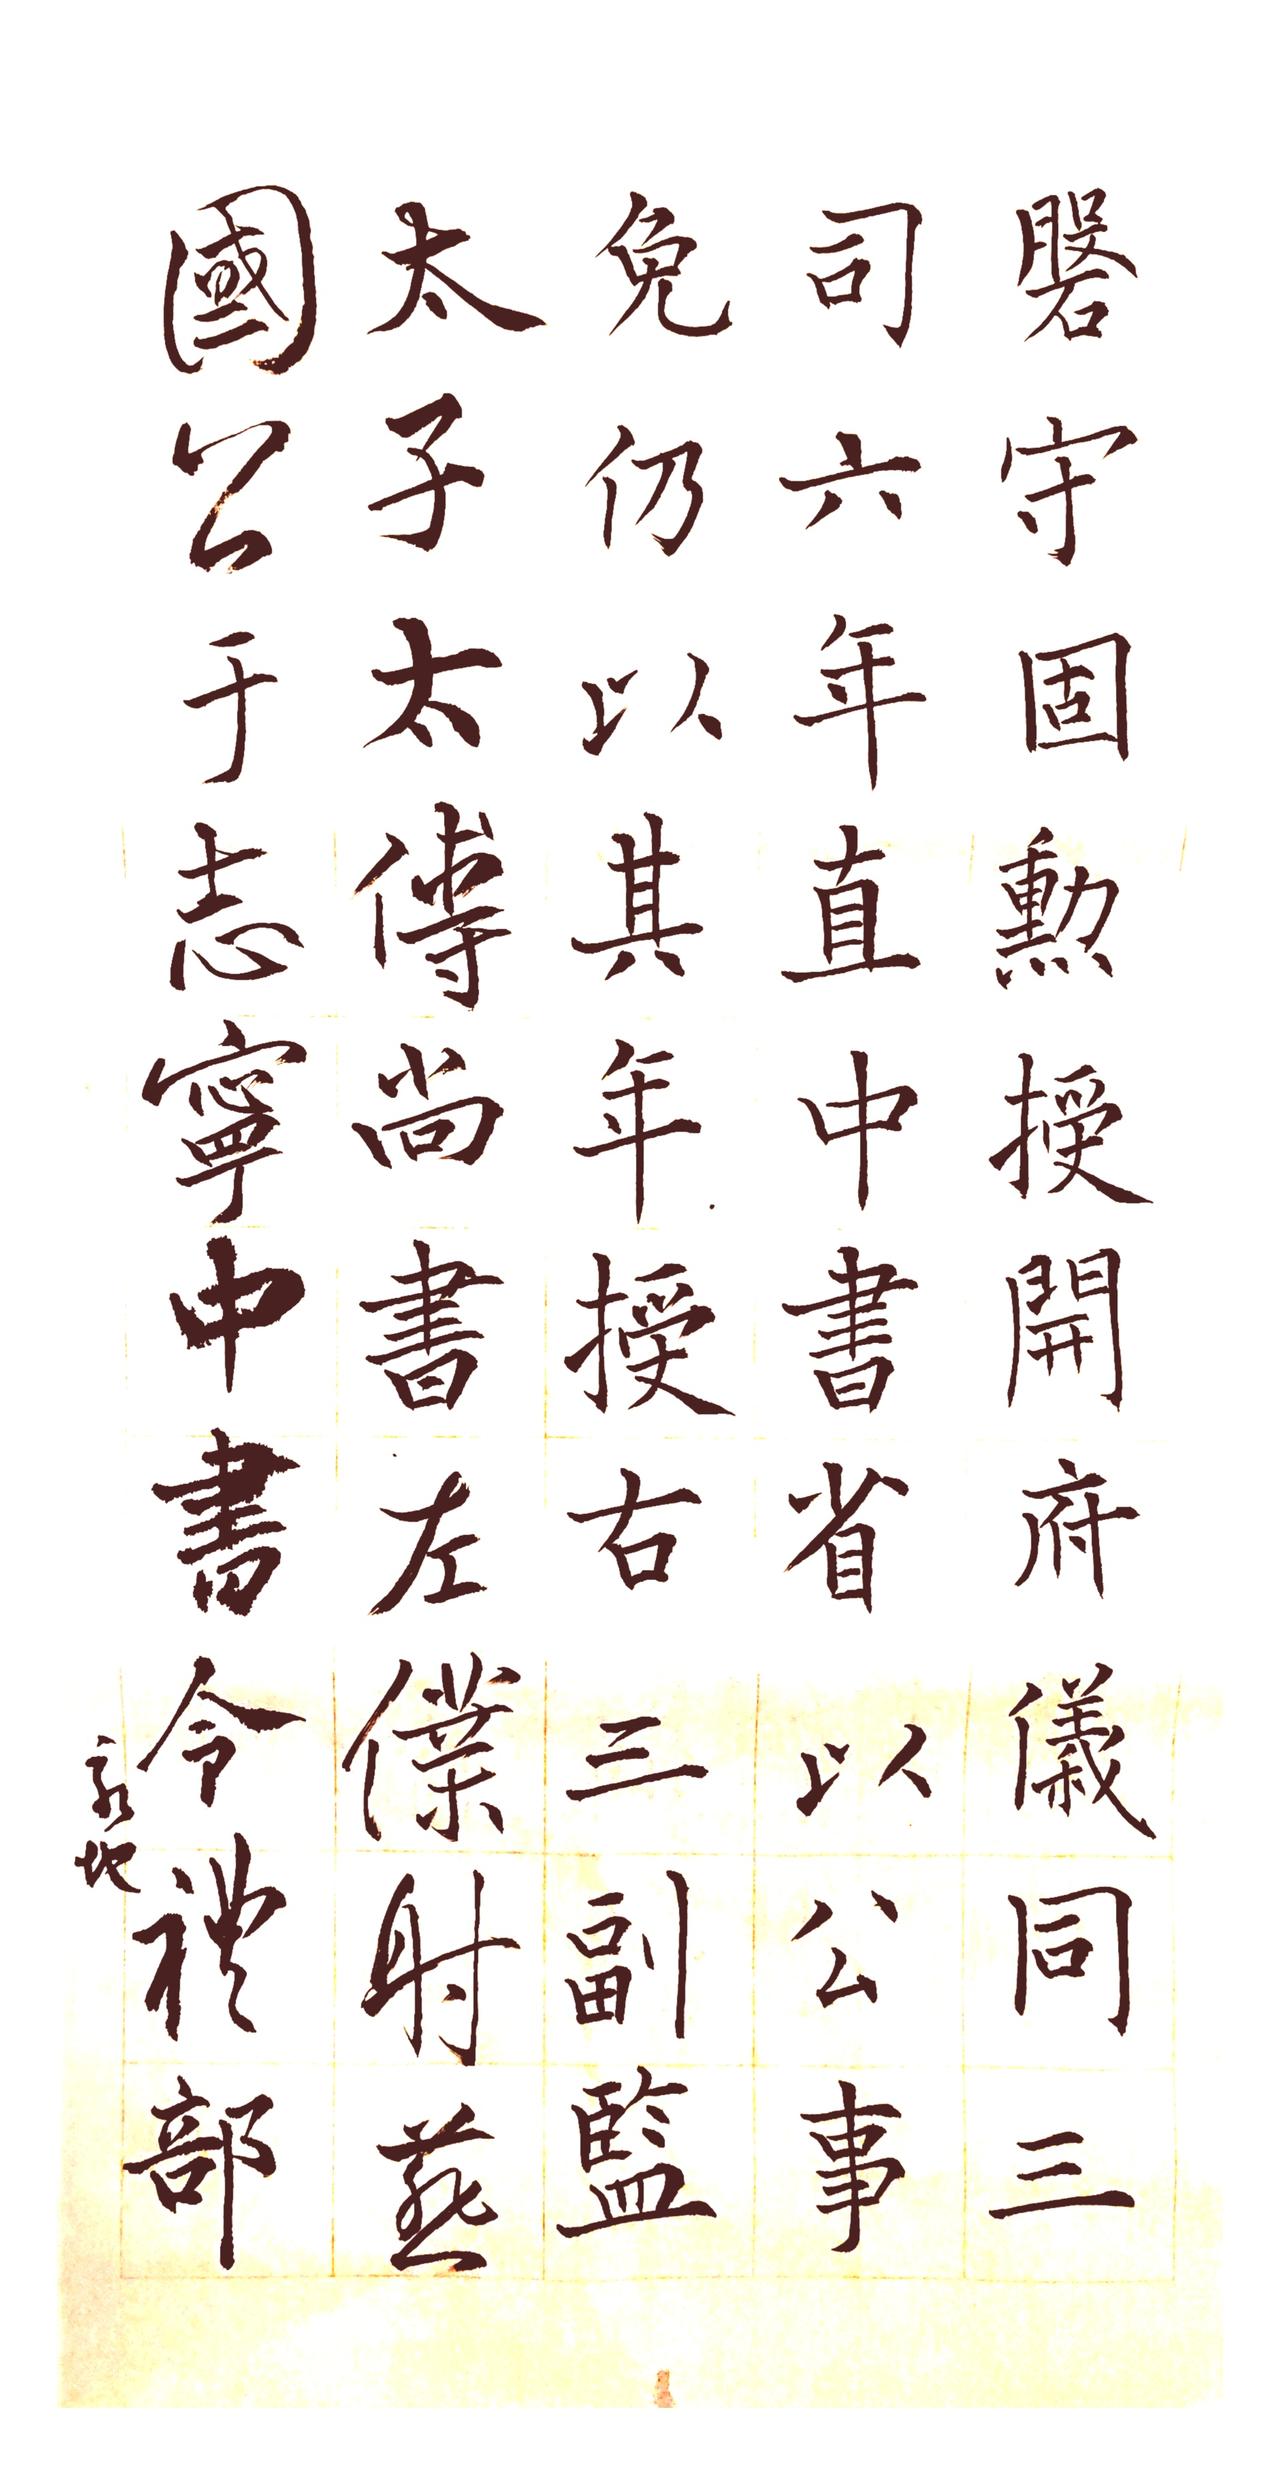 磐守固勲授開府儀同三
司六年直中書省以公事
免仍以其年授右三副監
太子太傅尚書左僕射燕
國公于志寧中書令禮部